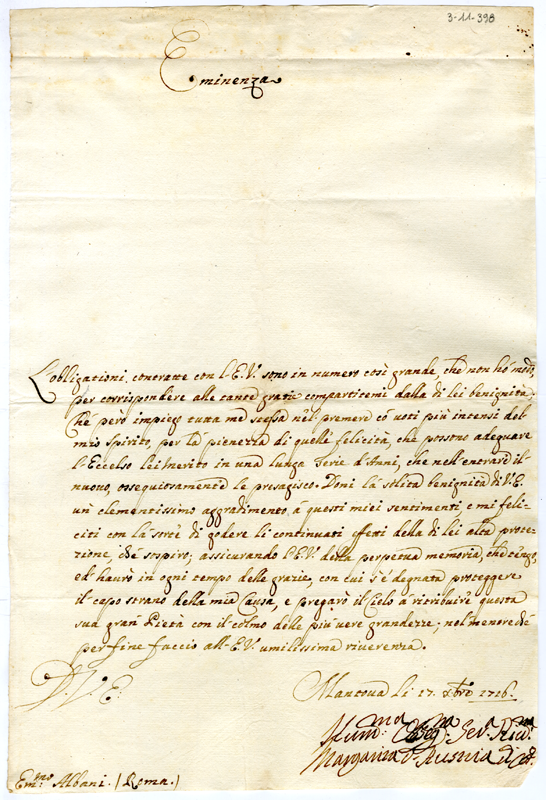 3-11-398
Eminenza
L'obligationi, contratte con l'E.V. sono in numero così grande, che non hò modo
per corrispondere alle tante gratie compartitemi dalla di lei benignità.
Chè però impiego tutta me stessa nel premere cò voti più intensi del
mio spirito, per la pienezza di quelle felicità, che possono adeguare
l'Eccelso lei Merito in una lunga serie d'Anni, che nell'entrare il
nuovo, ossequiosamente le presagisco. Doni la solita benignità di V.E.
un clementissimo aggradimento, à questi miei sentimenti, e mi feli-
citi con la sorte di godere li continuati effetti della di lei alta protez-
zione, che sospiro; assicurando l'E.V. della perpetua memoria, che tengo,
ed haurò in ogni tempo delle grazie, con cui s'è degnata proteggere
il capo strano della mia Causa, e pregarò il Cielo à ritribuire questa
sua gran Pietà con il colmo delle più vere grandezze; nel tenore di che
per fine faccio all'E.V. umilissima riverenza.
D. V. E.
Mantova li 17. Xbre 1716.
Hum.ma Serva
Margarita d'Austria
Em.mo Albani. (Roma.)